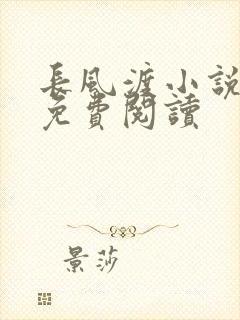 長風渡小說
免費閱讀
景莎